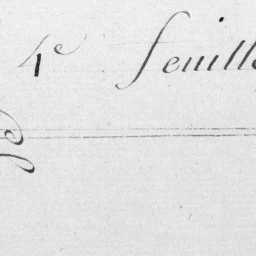 4e feuille